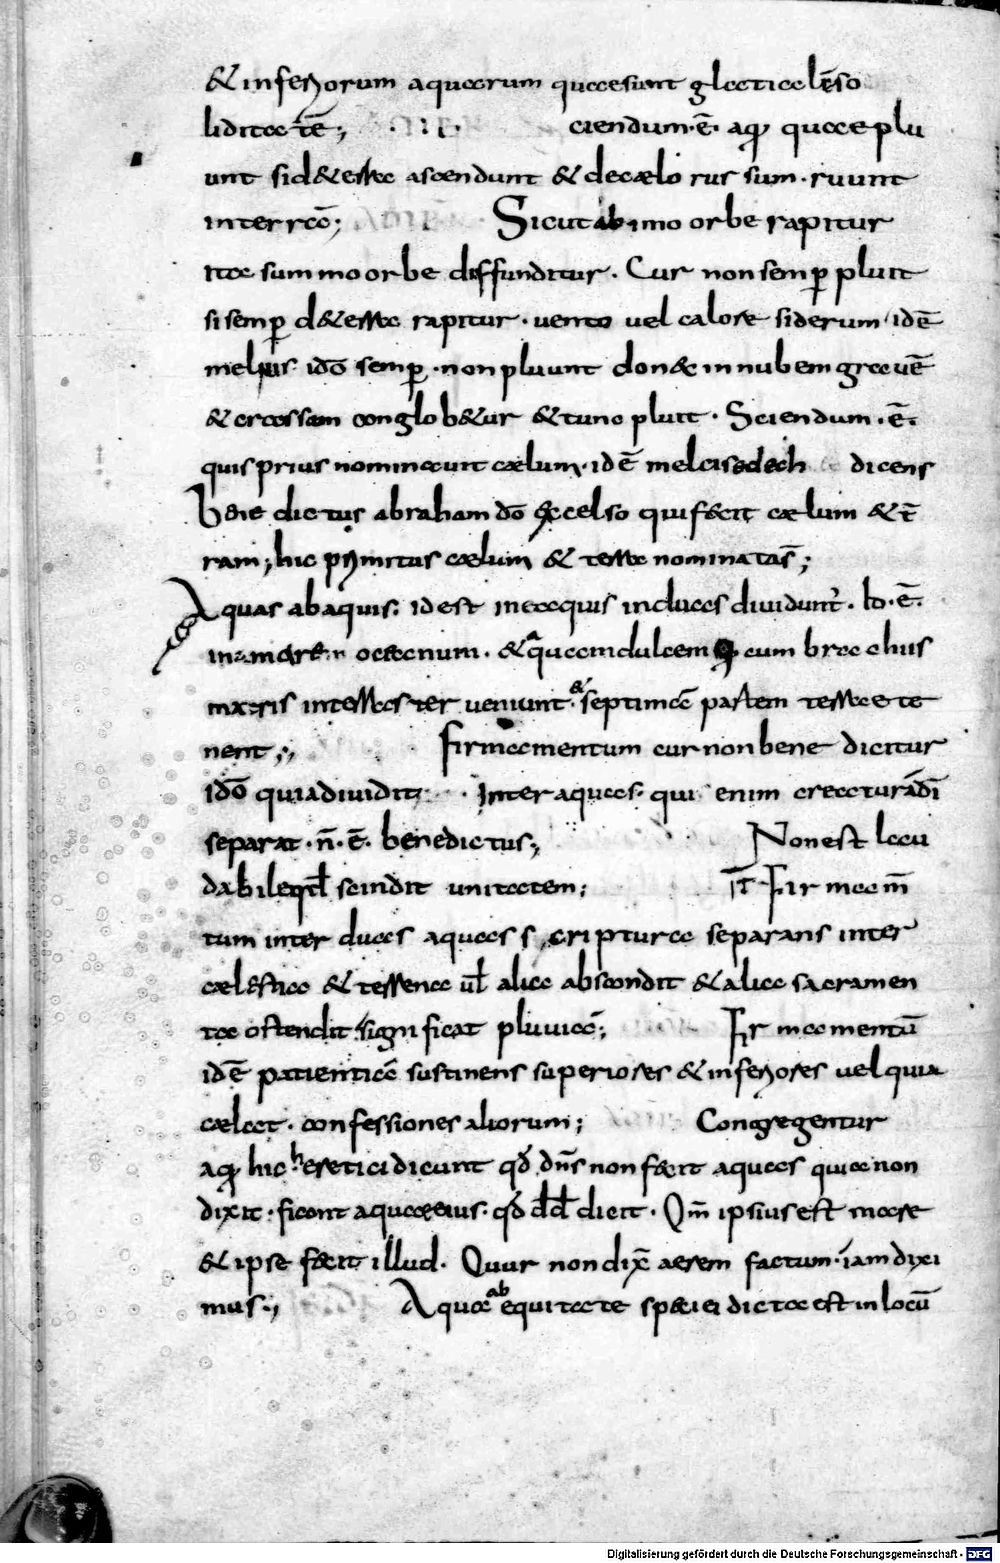 & inferiorum aquarum quae sunt glatialē so
liditatē; ciendum·ē· aq̨ quae plu
unt sid& erra ascendunt & de caelo rursum· ruunt
in terrā; Sicut ab imo orbe rapitur
ita summo orbe diffunditur. Cur non semp̱ pluit
si semp̱ d& erra rapitur· vento vel calore siderum idē
melius idō semp̱· non pluunt donec in nubem gravē
& crassam conglob&ur & tunc pluit· Sciendum·ē·
quis prius nominavit caelum· idē melcisedech dicens
Benedictus abraham dō excelso qui fecit caelum & t̄
ram; hic primitus caelum & terra nominatas̄;
Aquas ab aquis: id est in aquis in duas dividunt̉. Id·ē·
in mare in oceanum· & aquam dulcem cum brachiis
maris inter has ter veniunt· & septimā partem terrae te
nent; firmamentum cur non bene dicitur
idō quia dividit; Inter aquas· qui enim creaturā dī
separat· n̄·ē· benedictus; Non est lau
dabile qđ scindit unitatem; IT Firmam̄
tum inter duas aquas scriptura separans inter
caelestia & terrena ūl alia abscondit & alia sacramen
ta ostendit significat pluviā; Firmamentū
idē patientiā sustinens superiores & inferiores vel quia
caelat· confessiones aliorum; Congregentur
aq̨ hic heretici dicunt qđ dn̄s non fecit aquas quia non
dixit· fiant aquae eius· qđ dd̄ dicit· Qm̄ ipsius est mare
& ipse fecit illud. Quur non dix̄ aerem factum· iam dixi
mus; Aqua ab equitate speciei dicta est in locū